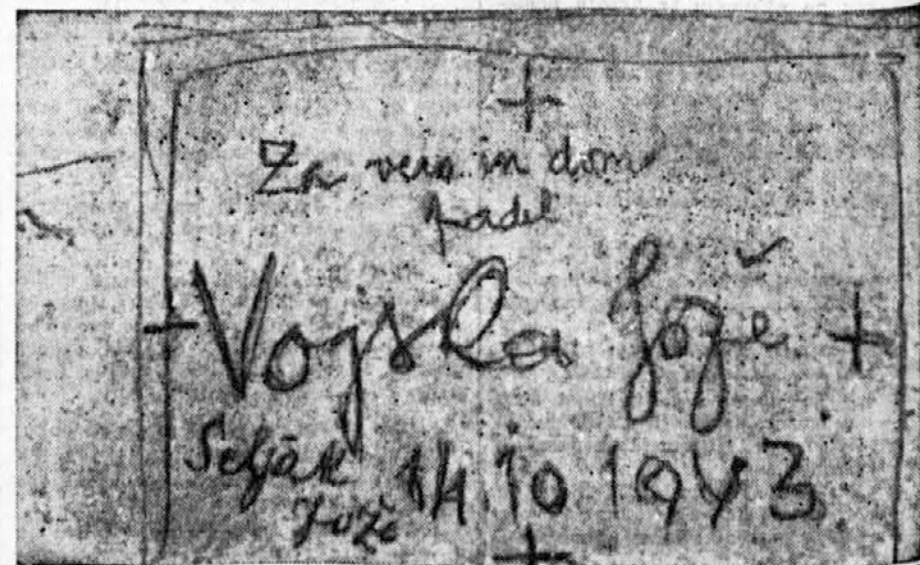 Za vero in dom
padel
Vojska Jože
Seljak 14 10 1943
Jože